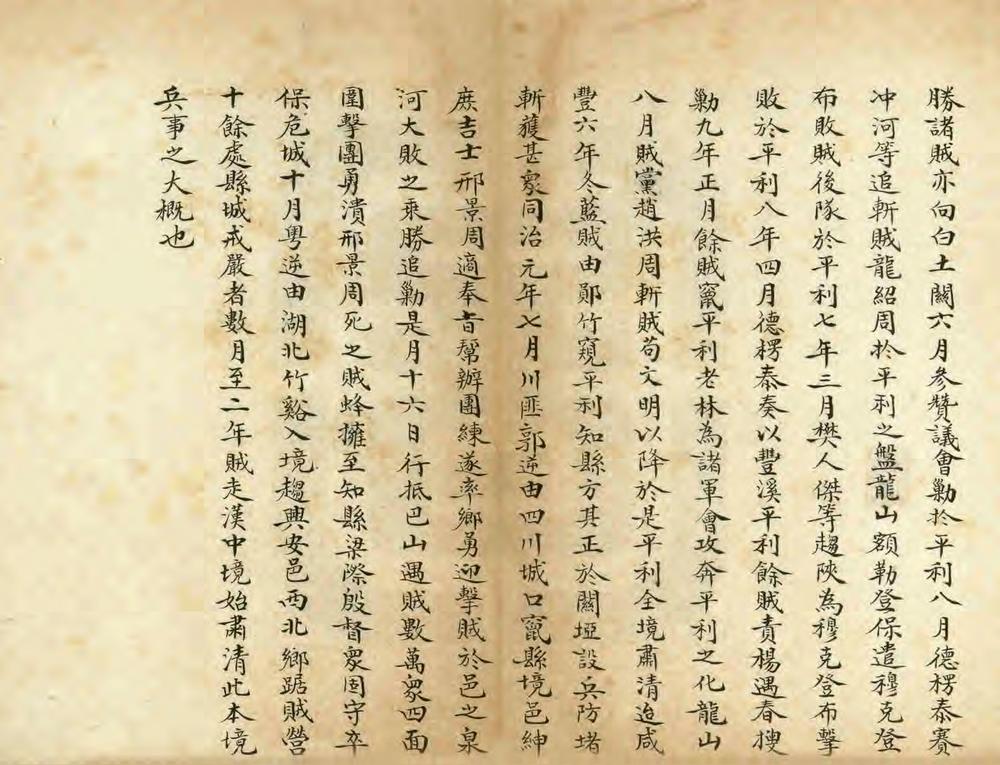 勝諸賊亦向白土關六月參贊議會勦於平利八月德楞泰賽
冲河等追斬賊龍紹周於平利之盤龍山額勒登保遣穆克登
布敗賊後隊於平利七年三月樊人傑等趨陝為穆克登布擊
敗於平利八年四月德楞泰奏以豐溪平利餘賊責楊遇春搜
勦九年正月餘賊竄平利老林為諸軍會攻奔平利之化龍山
八月賊黨趙洪周斬賊苟文明以降於是平利全境肅清迨咸
豐六年冬藍賊由鄖竹窺平利知縣方其正於關埡設兵防堵
斬獲甚衆同治元年七月川匪郭逆由四川城口竄縣境邑紳
庶吉士邢景周適奉旨幫辦團練遂率鄉勇迎擊賊於邑之泉
河大敗之乘勝追勦是月十六日行抵巴山遇賊數萬衆四面
圍擊團勇潰邢景周死之賊蜂擁至知縣梁際殷督衆固守卒
保危城十月粵逆由湖北竹谿入境趨興安邑西北鄉踞賊營
十餘處縣城戒嚴者數月至二年賊走漢中境始肅清此本境
兵事之大概也